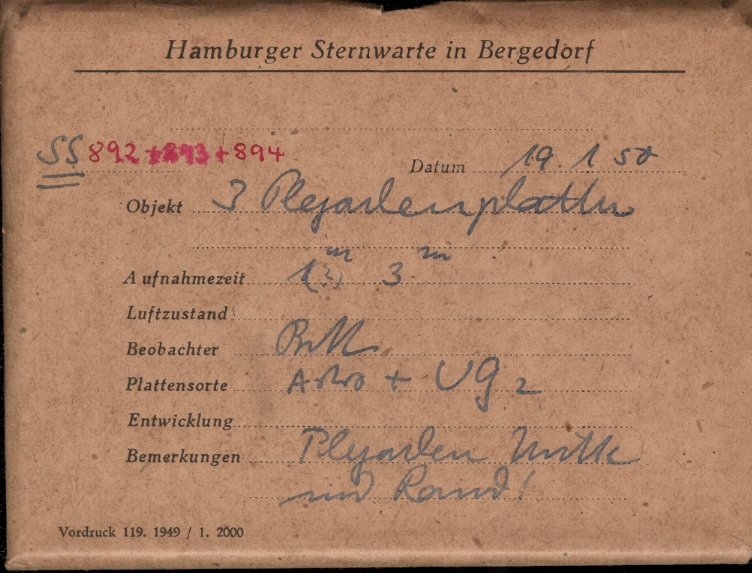 Hamburger Sternwarte in Bergedorf
SS 892 + 893 + 894
Datum 19. 1 50
Objekt 3 Plejadenplatten
Aufnahmezeit 1(?)m 3m
Luftzustand
Beobachter
Plattensorte Astro + UG 2
Entwicklung
Bemerkungen Plejaden Mitte
und Rand!
Vordruck 119. 1949 / 1. 2000